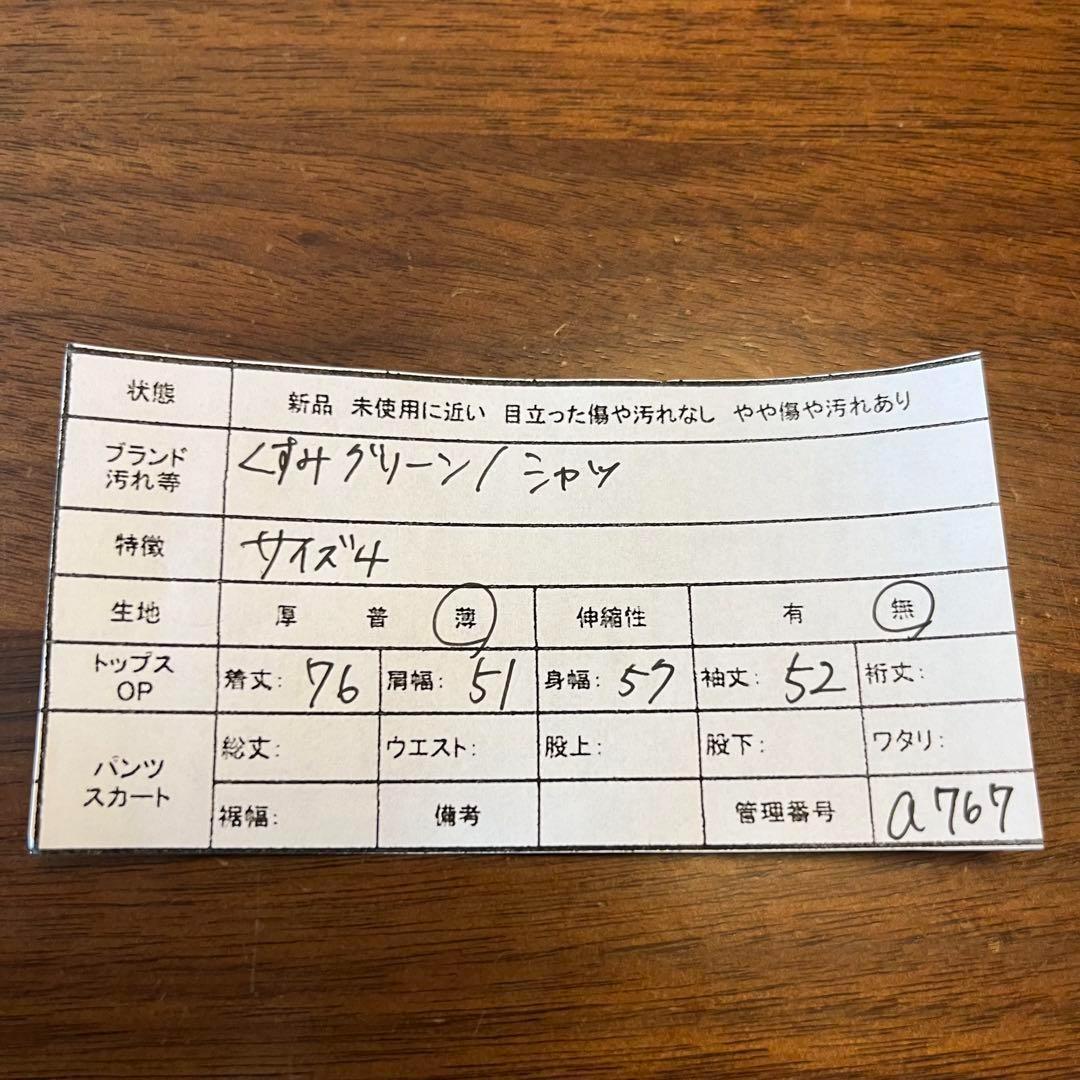 状態 新品 未使用に近い 目立った傷や汚れなし やや傷や汚れあり
ブランド
汚れ等 くすみグリーン/シャツ
特徴 サイズ4
生地 厚 普 薄 伸縮性 有 無
トップス
OP 着丈: 76 肩幅: 51 身幅: 57 袖丈: 52 裄丈:
パンツ
スカート 総丈: ウエスト: 股上: 股下: ワタリ:
裾幅: 備考 管理番号 a767